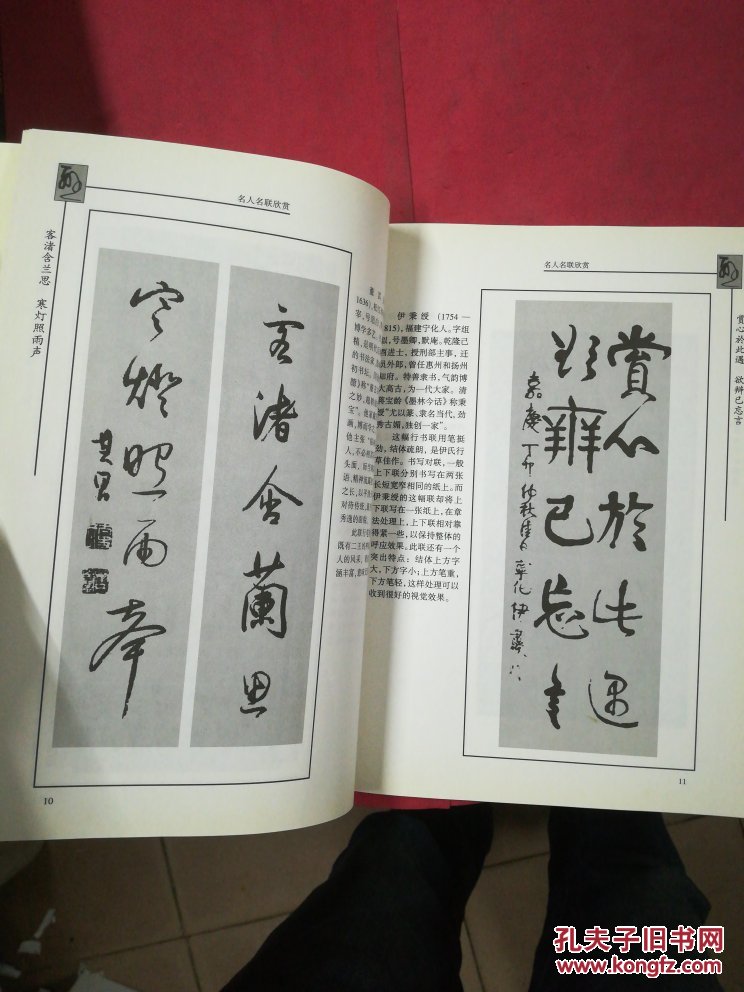 名人名联欣赏
客渚含兰思 寒灯照雨声
客渚含蘭思
寒燈照雨聲
其昌
10
名人名联欣赏
赏心於此遇 欲辨已忘言
伊秉绶 (1754—
1815)，福建宁化人。字组
似，号墨卿，默庵。乾隆己
酉进士，授刑部主事，迁
员外郎，曾任惠州和扬州
知府。特善隶书，气韵博
大高古，为一代大家。清
蒋宝龄《墨林今话》称秉
绶“尤以篆、隶名当代，劲
秀古媚，独创一家”。
这幅行书联用笔挺
劲，结体疏朗，是伊氏行
草佳作。书写对联，一般
上下联分别书写在两张
长短宽窄相同的纸上。而
伊秉绶的这幅联却将上
下联写在一张纸上，在章
法处理上，上下联相对靠
得紧一些，以保持整体的
呼应效果。此联还有一个
突出特点：结体上方字
大，下方字小；上方笔重，
下方笔轻，这样处理可以
收到很好的视觉效果。
賞心於此遇
欲辨已忘言
嘉慶丁卯仲秋
11
孔夫子旧书网
www.kongfz.com